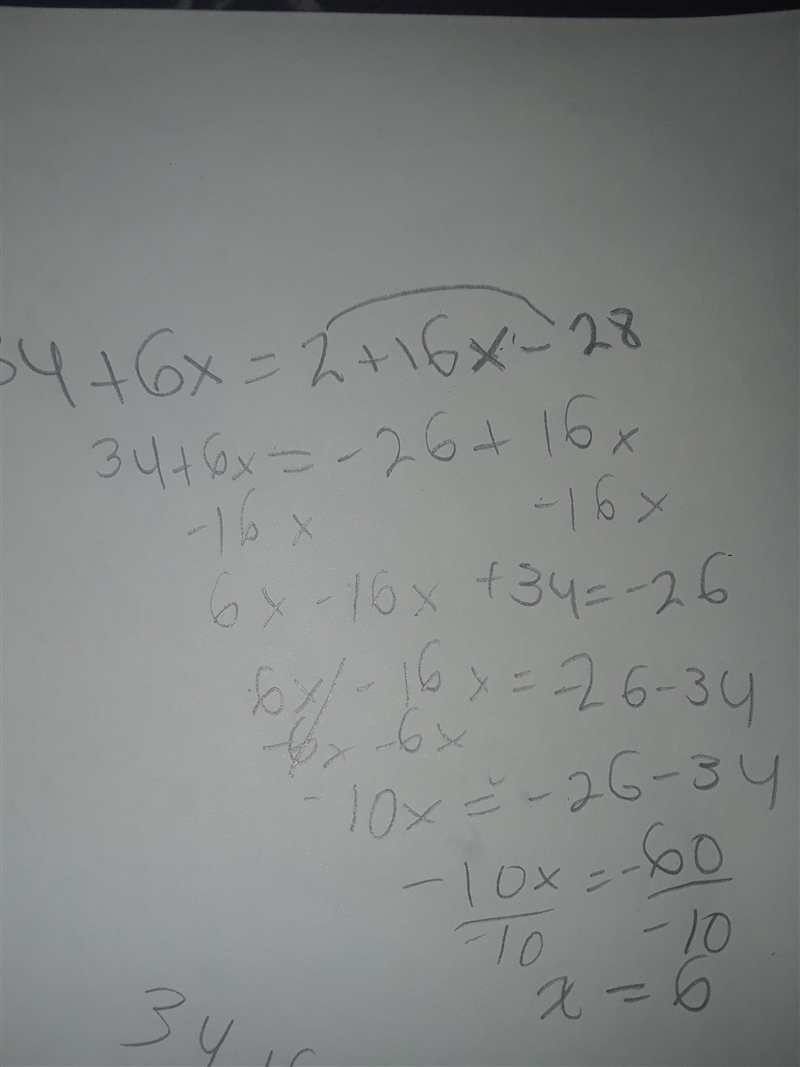 34+6x=2+16x-28
34+6x=-26+16x
-16x -16x
6x-16x+34=-26
6x-16x=-26-34
-6x -6x
-10x=-26-34
-10x=-60
-10 -10
x=6
34